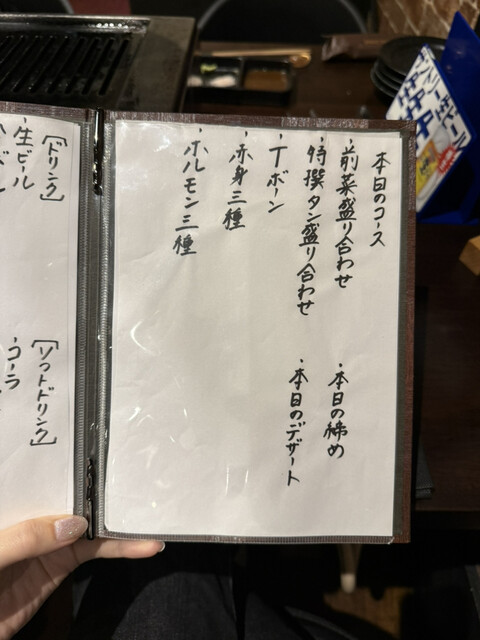 本日のコース
・前菜盛り合わせ
・特撰タン盛り合わせ
・Tボーン
・赤身三種
・ホルモン三種
・本日の締め
・本日のデザート
[ドリンク]
・生ビール
[ソフトドリンク]
・コーラ